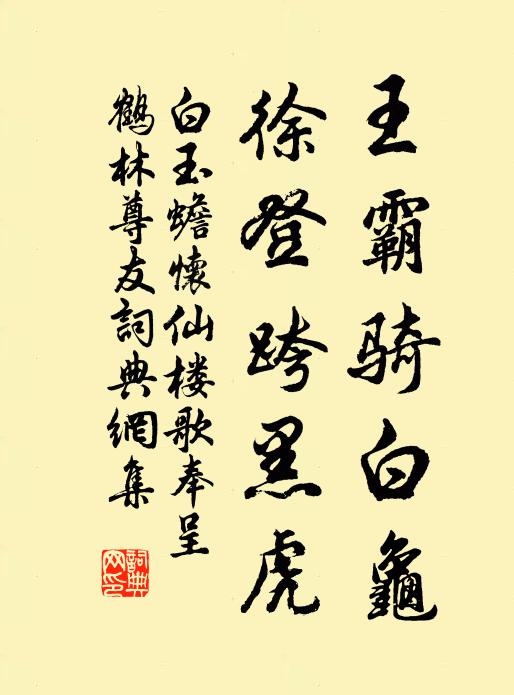 王霸骑白龜
徐登跨黑虎
白玉蟾懷仙楼歌奉呈
鶴林尊友詞典網集
詞典网印